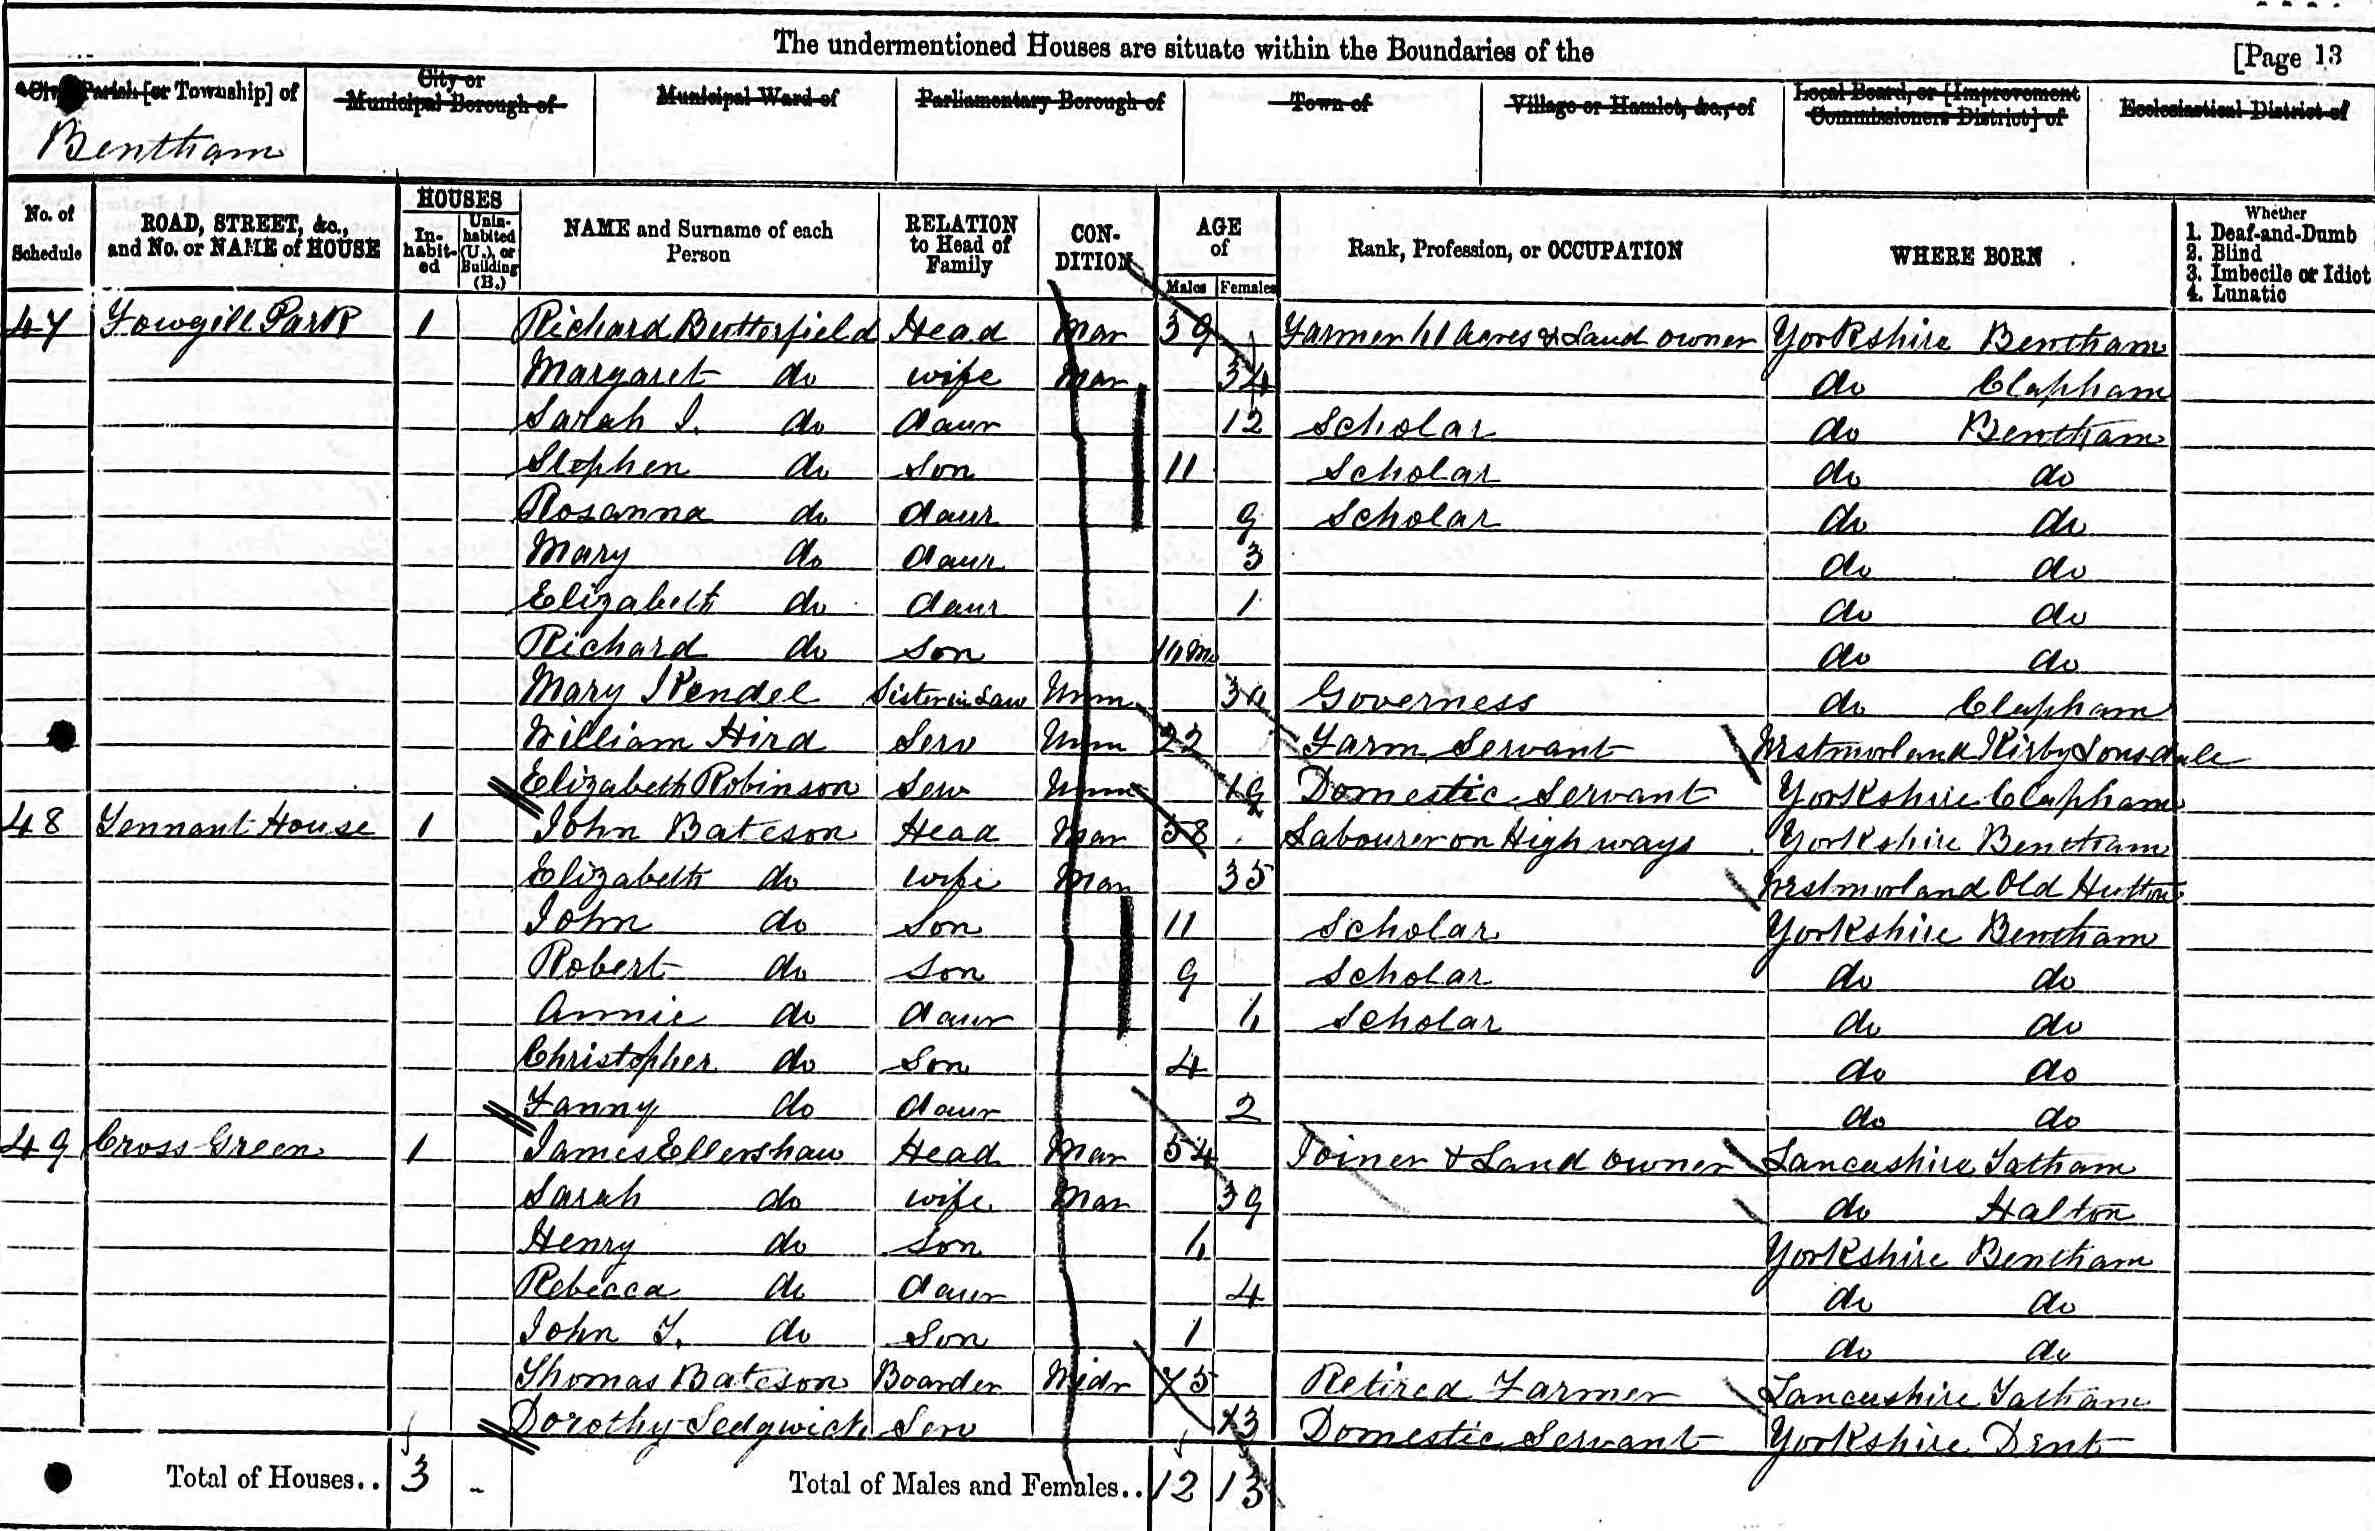 The undermentioned Houses are situate within the Boundaries of the [Page 13
Civil Parish [or Township] of City or Municipal Borough of Municipal Ward of Parliamentary Borough of Town of Village or Hamlet, &c., of Local Board, or [Improvement Commissioners District] of Ecclesiastical District of
Bentham
No. of Schedule ROAD, STREET, &c., and No. or NAME of HOUSE HOUSES In-habit-ed Unin-habited (U.), or Building (B.) NAME and Surname of each Person RELATION to Head of Family CON-DITION AGE of Males Females Rank, Profession, or OCCUPATION WHERE BORN Whether 1. Deaf-and-Dumb 2. Blind 3. Imbecile or Idiot 4. Lunatic
47 Fowgill Park 1 Richard Butterfield Head Mar 39 Farmer 61 Acres & Land owner Yorkshire Bentham
Margaret do wife Mar 34 do Clapham
Sarah I. do daur 12 Scholar do Bentham
Stephen do Son 11 Scholar do do
Rosanna do daur 9 Scholar do do
Mary do daur 3 do do
Elizabeth do daur 1 do do
Richard do Son do do
Mary Kendel Sister in Law Unm Governess do Clapham
William Hird Serv Unm 22 Farm Servant Westmorland Kirby Lonsdale
Elizabeth Robinson Serv Unm 19 Domestic Servant Yorkshire Clapham
48 Tennant House 1 John Bateson Head Mar 58 Labourer on High ways Yorkshire Bentham
Elizabeth do wife Mar 35 Westmorland Old Hutton
John do Son 11 Scholar Yorkshire Bentham
Robert do Son 9 Scholar do do
Annie do daur 6 Scholar do do
Christopher do Son 4 do do
Fanny do daur 2 do do
49 Cross Green 1 James Ellershaw Head Mar 54 Joiner & Land owner Lancashire Tatham
Sarah do wife Mar 39 do Halton
Henry do Son 6 Yorkshire Bentham
Rebecca do daur 4 do do
John T. do Son 1 do do
Thomas Bateson Boarder Widr 75 Retired Farmer Lancashire Tatham
Dorothy Sedgwick Serv 73 Domestic Servant Yorkshire Dent
Total of Houses.. 3 - Total of Males and Females.. 12 13